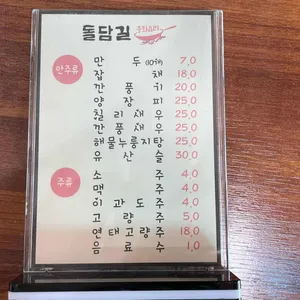 돌담길 중화요리
안주류
만두(10개) 7,0
잡채 18,0
깐풍기 20,0
양장피 25,0
칠리새우 25,0
깐풍새우 25,0
해물누룽지탕 25,0
유산슬 30,0
주류
소주 4,0
맥주 4,0
이과도주 4,0
고량주 5,0
연태고량주 18,0
음료수 1,0